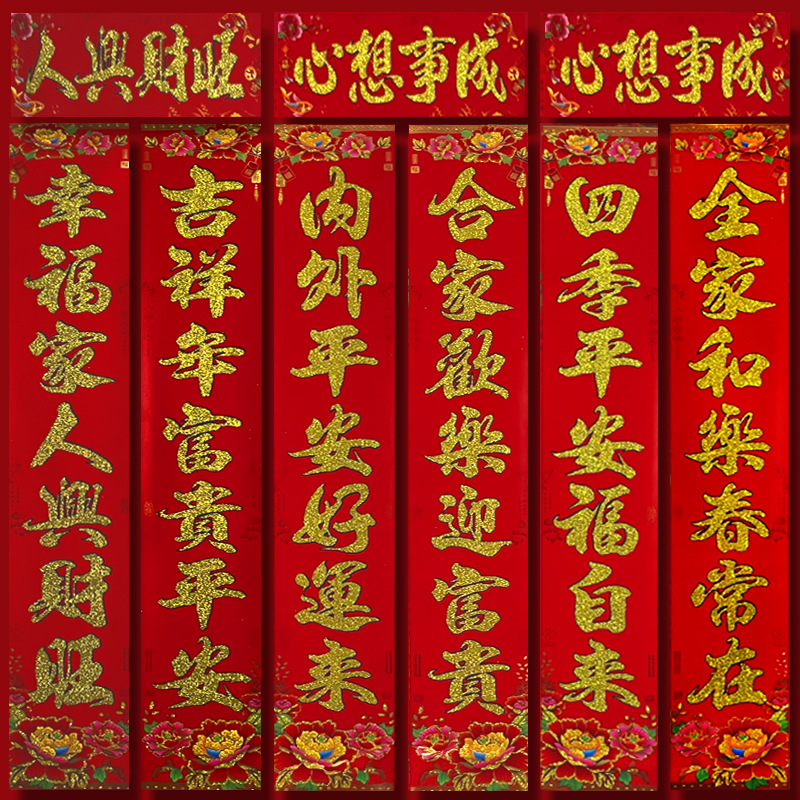 人興財旺
心想事成
心想事成
幸福家人興財旺
吉祥年富貴平安
内外平安好運来
合家歡樂迎富貴
四季平安福自来
全家和樂春常在